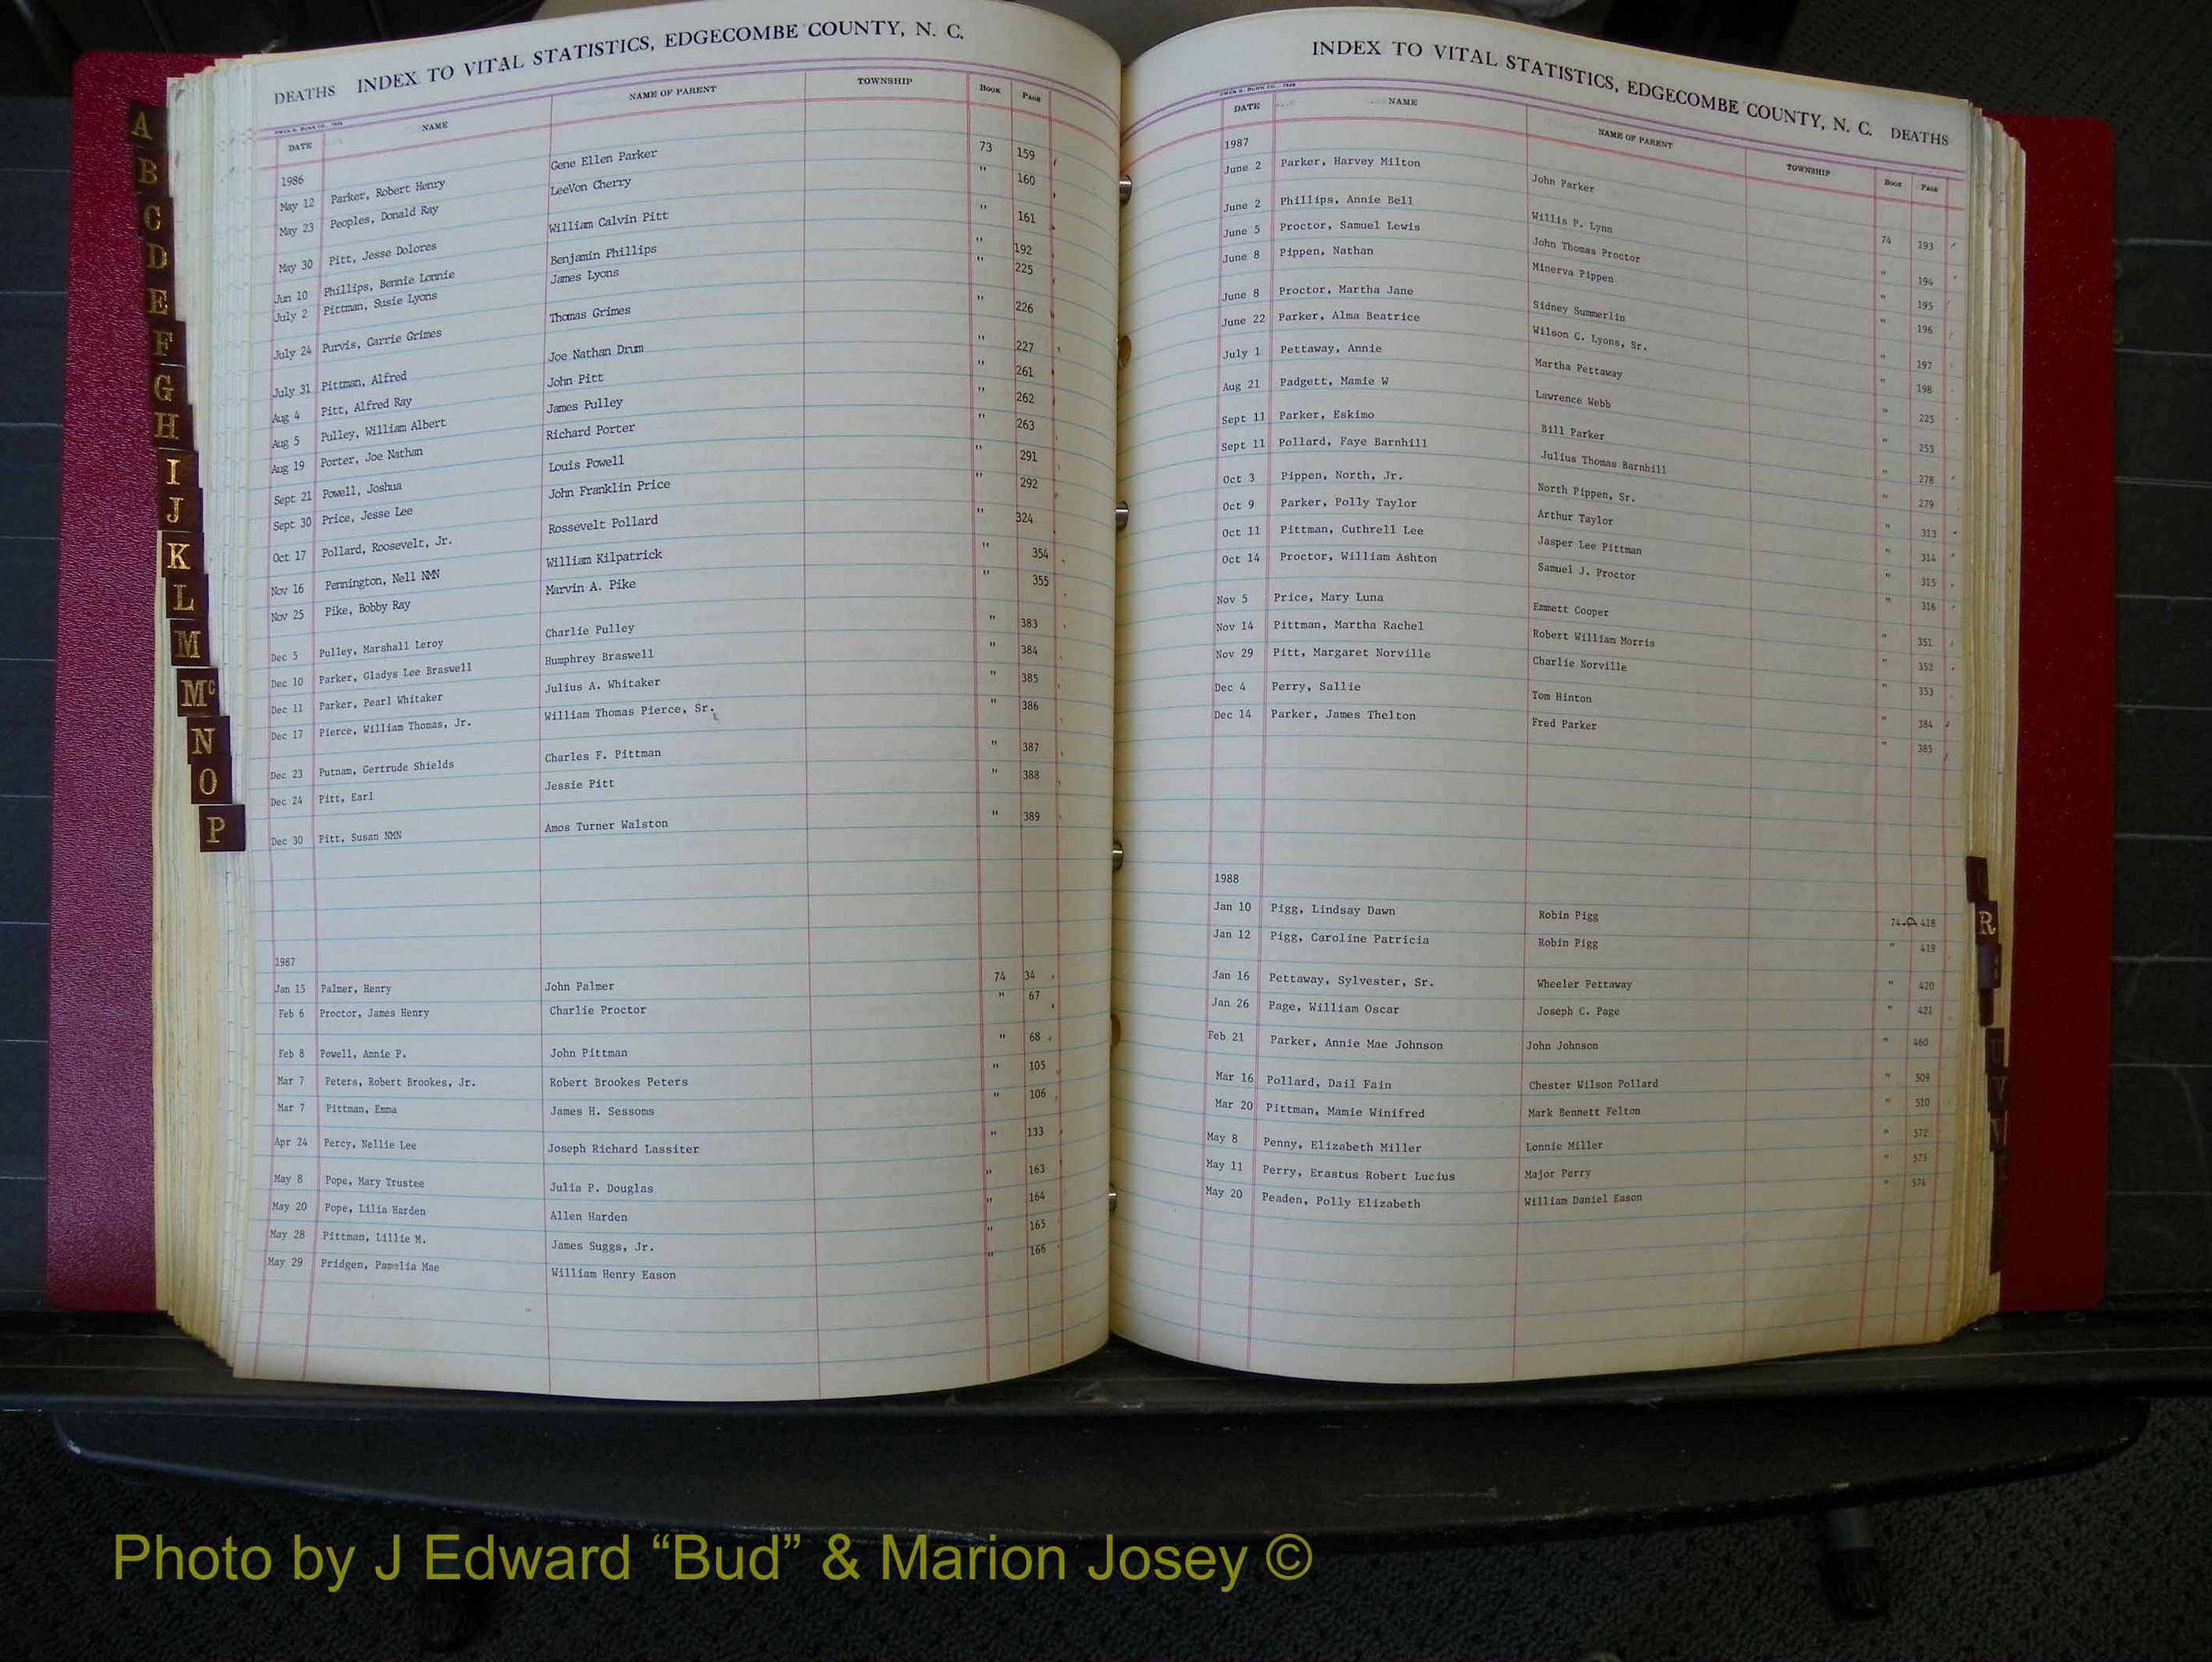 DEATHS INDEX TO VITAL STATISTICS, EDGECOMBE COUNTY, N. C.
OWEN G. DUNN CO.
DATE NAME NAME OF PARENT TOWNSHIP BOOK PAGE
1986
May 12 Parker, Robert Henry Gene Ellen Parker 73 159
May 23 Peoples, Donald Ray LeeVon Cherry " 160
May 30 Pitt, Jesse Dolores William Calvin Pitt " 161
Jun 10 Phillips, Bennie Lonnie Benjamin Phillips " 192
July 2 Pittman, Susie Lyons James Lyons " 225
July 24 Purvis, Carrie Grimes Thomas Grimes " 226
July 31 Pittman, Alfred Joe Nathan Drum " 227
Aug 4 Pitt, Alfred Ray John Pitt " 261
Aug 5 Pulley, William Albert James Pulley " 262
Aug 19 Porter, Joe Nathan Richard Porter " 263
Sept 21 Powell, Joshua Louis Powell " 291
Sept 30 Price, Jesse Lee John Franklin Price " 292
Oct 17 Pollard, Roosevelt, Jr. Rossevelt Pollard " 324
Nov 16 Pennington, Nell NMN William Kilpatrick " 354
Nov 25 Pike, Bobby Ray Marvin A. Pike " 355
Dec 5 Pulley, Marshall Leroy Charlie Pulley " 383
Dec 10 Parker, Gladys Lee Braswell Humphrey Braswell " 384
Dec 11 Parker, Pearl Whitaker Julius A. Whitaker " 385
Dec 17 Pierce, William Thomas, Jr. William Thomas Pierce, Sr. " 386
Dec 23 Putnam, Gertrude Shields Charles F. Pittman " 387
Dec 24 Pitt, Earl Jessie Pitt " 388
Dec 30 Pitt, Susan NMN Amos Turner Walston " 389
1987
Jan 15 Palmer, Henry John Palmer 74 34
Feb 6 Proctor, James Henry Charlie Proctor " 67
Feb 8 Powell, Annie P. John Pittman " 68
Mar 7 Peters, Robert Brookes, Jr. Robert Brookes Peters " 105
Mar 7 Pittman, Emma James H. Sessoms " 106
Apr 24 Percy, Nellie Lee Joseph Richard Lassiter " 133
May 8 Pope, Mary Trustee Julia P. Douglas " 163
May 20 Pope, Lilia Harden Allen Harden " 164
May 28 Pittman, Lillie M. James Suggs, Jr. " 165
May 29 Pridgen, Pamelia Mae William Henry Eason " 166
A
B
C
D
E
F
G
H
I
J
K
L
M
Mc
N
O
P
INDEX TO VITAL STATISTICS, EDGECOMBE COUNTY, N. C. DEATHS
OWEN G. DUNN CO.
DATE NAME NAME OF PARENT TOWNSHIP BOOK PAGE
1987
June 2 Parker, Harvey Milton John Parker 74 193
June 2 Phillips, Annie Bell Willis P. Lynn " 194
June 5 Proctor, Samuel Lewis John Thomas Proctor " 195
June 8 Pippen, Nathan Minerva Pippen " 196
June 8 Proctor, Martha Jane Sidney Summerlin " 197
June 22 Parker, Alma Beatrice Wilson C. Lyons, Sr. " 198
July 1 Pettaway, Annie Martha Pettaway " 225
Aug 21 Padgett, Mamie W Lawrence Webb " 253
Sept 11 Parker, Eskimo Bill Parker " 278
Sept 11 Pollard, Faye Barnhill Julius Thomas Barnhill " 279
Oct 3 Pippen, North, Jr. North Pippen, Sr. " 313
Oct 9 Parker, Polly Taylor Arthur Taylor " 314
Oct 11 Pittman, Cuthrell Lee Jasper Lee Pittman " 315
Oct 14 Proctor, William Ashton Samuel J. Proctor " 316
Nov 5 Price, Mary Luna Emmett Cooper " 351
Nov 14 Pittman, Martha Rachel Robert William Morris " 352
Nov 29 Pitt, Margaret Norville Charlie Norville " 353
Dec 4 Perry, Sallie Tom Hinton " 384
Dec 14 Parker, James Thelton Fred Parker " 385
1988
Jan 10 Pigg, Lindsay Dawn Robin Pigg 74- 418
Jan 12 Pigg, Caroline Patricia Robin Pigg " 419
Jan 16 Pettaway, Sylvester, Sr. Wheeler Pettaway " 420
Jan 26 Page, William Oscar Joseph C. Page " 421
Feb 21 Parker, Annie Mae Johnson John Johnson " 460
Mar 16 Pollard, Dail Fain Chester Wilson Pollard " 509
Mar 20 Pittman, Mamie Winifred Mark Bennett Felton " 510
May 8 Penny, Elizabeth Miller Lonnie Miller " 572
May 11 Perry, Erastus Robert Lucius Major Perry " 573
May 20 Peaden, Polly Elizabeth William Daniel Eason " 574
R
U
Photo by J Edward “Bud” & Marion Josey ©